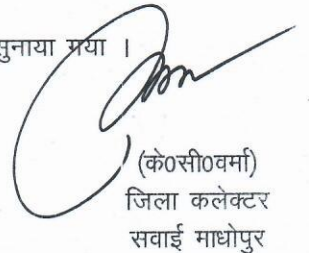 सुनाया गया ।
(के०सी०वर्मा)
जिला कलेक्टर
सवाई माधोपुर